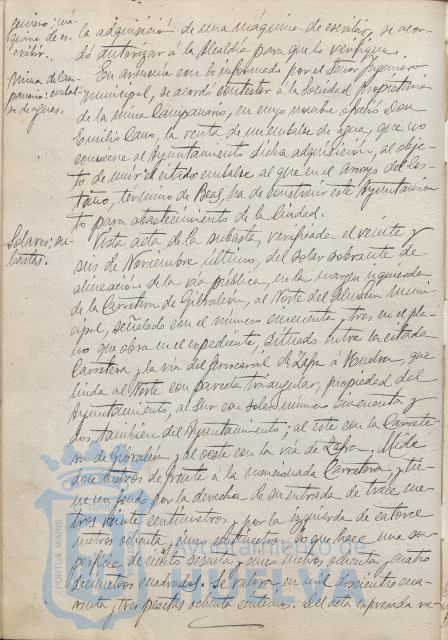 quiera: má-
quina de es-
cribir.
la adquisición de una máquina de escribir, se acor-
dó autorizar á la Alcaldía para que lo verifique.
Mina de Cam-
panario: embal-
se de aguas.
En armonía con lo informado por el Señor Ingeniero
municipal, se acordó contestar á la Sociedad Propietaria
de la Mina Campanario, en cuyo nombre Don
Emilio Cano, la venta de un embalse de agua, que no
conviene al Ayuntamiento dicha adquisición, al obje-
to de unir el citado embalse al que en el arroyo del
término de Beas, ha de construir este Ayuntamien-
to para abastecimiento de la Ciudad.
Solares: su-
bastas.
Vista acta de la subasta, verificada el veinte y
seis de Noviembre último, del solar sobrante de
alineación de la vía pública, en la margen izquierda
de la Carretera de Gibraleón, al Norte del Almacén Muni-
cipal, señalado con el número cincuenta y tres en el pla-
no que obra en el expediente, situado entre la citada
Carretera y la vía del ferrocarril de Zafra á Huelva, que
linda al Norte con parcela triangular, propiedad del
Ayuntamiento, al Sur con solar número cincuenta y
dos también del Ayuntamiento; al este con la Carrete-
ra de Gibraleón y al oeste con la vía de Zafra. Mide
doce metros de frente á la mencionada Carretera y tie-
ne un fondo por la derecha de su entrada de trece me-
tros veinte centímetros y por la izquierda de catorce
metros ochenta y cinco centímetros lo que hace una su-
perficie de ciento sesenta y cinco metros ochenta y cuatro
decímetros cuadrados. Se valora en mil doscientas cua-
renta y tres pesetas ochenta céntimos. Del acta expresada re-
PORTUS MARIS
Ayuntamiento de
HUELVA